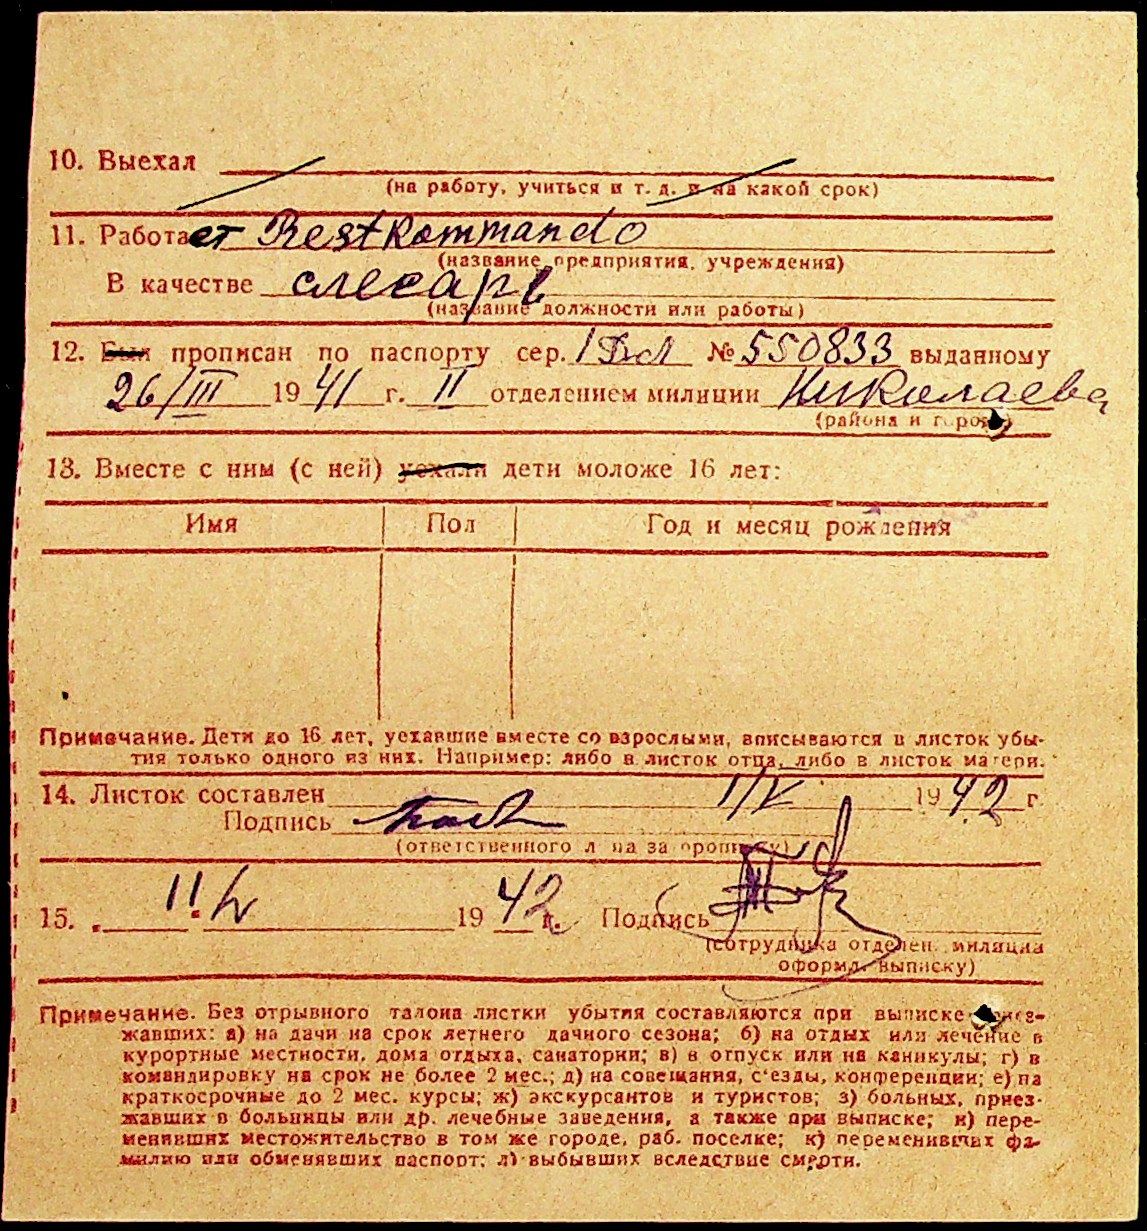 10. Выехал
(на работу, учиться и т. д. и на какой срок)
11. Работает Restkommando
(название предприятия, учреждения)
В качестве слесарь
(название должности или работы)
12. Был прописан по паспорту сер. № 550833 выданному
26/III 1941 г. II отделением милиции Николаева
(района и города)
13. Вместе с ним (с ней) уехали дети моложе 16 лет:
Имя Пол Год и месяц рождения
Примечание. Дети до 16 лет, уехавшие вместе со взрослыми, вписываются в листок убы-
тия только одного из них. Например: либо в листок отца, либо в листок матери.
14. Листок составлен 1/V 1942 г
Подпись
(ответственного лица за прописку)
15. 1942 г. Подпись
(сотрудника отделен. милиции
оформл. выписку)
Примечание. Без отрывного талона листки убытия составляются при выписке выез-
жавших: а) на дачи на срок летнего дачного сезона; б) на отдых или лечение в
курортные местности, дома отдыха, санатории; в) в отпуск или на каникулы; г) в
командировку на срок не более 2 мес.; д) на совещания, с'езды, конференции; е) на
краткосрочные до 2 мес. курсы; ж) экскурсантов и туристов; з) больных, приез-
жавших в больницы или др. лечебные заведения, а также при выписке; и) пере-
менивших местожительство в том же городе, раб. поселке; к) переменивших фа-
милию или обменявших паспорт; л) выбывших вследствие смерти.